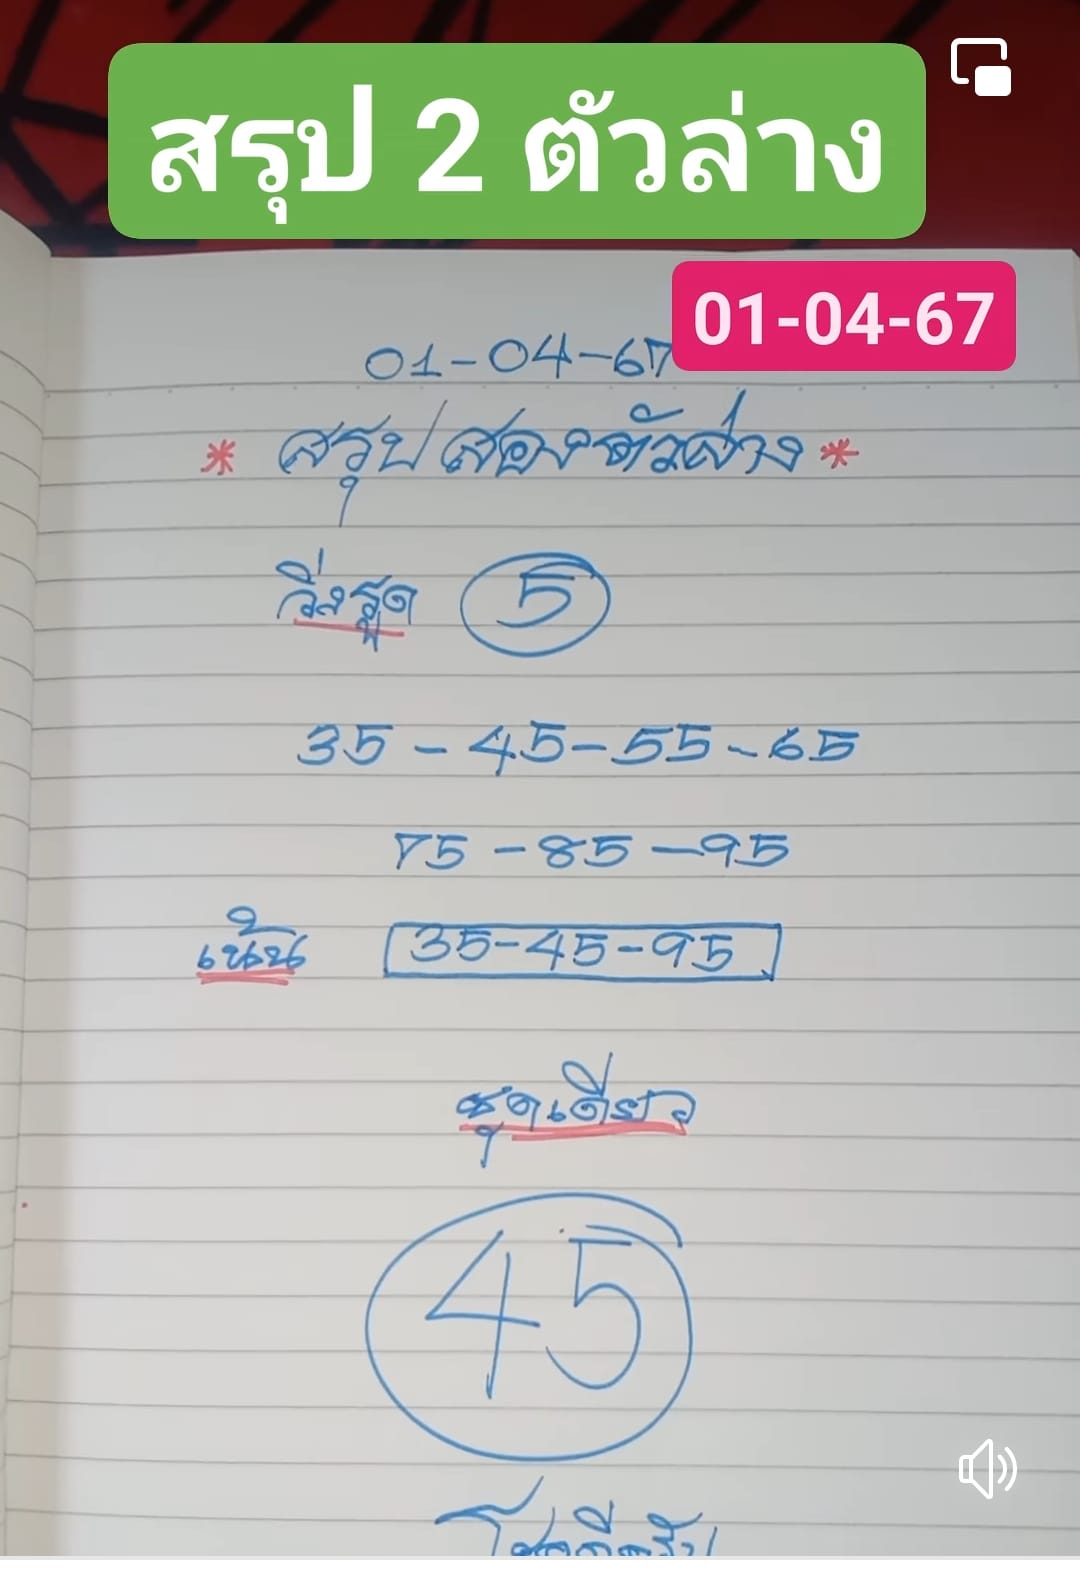 สรุป 2 ตัวล่าง
01-04-67
01-04-67
* สรุปสองตัวล่าง *
วิ่งรูด 5
35 - 45 - 55 - 65
75 - 85 - 95
เน้น 35-45-95
ชุดเดียว
45
โชคดีครับ